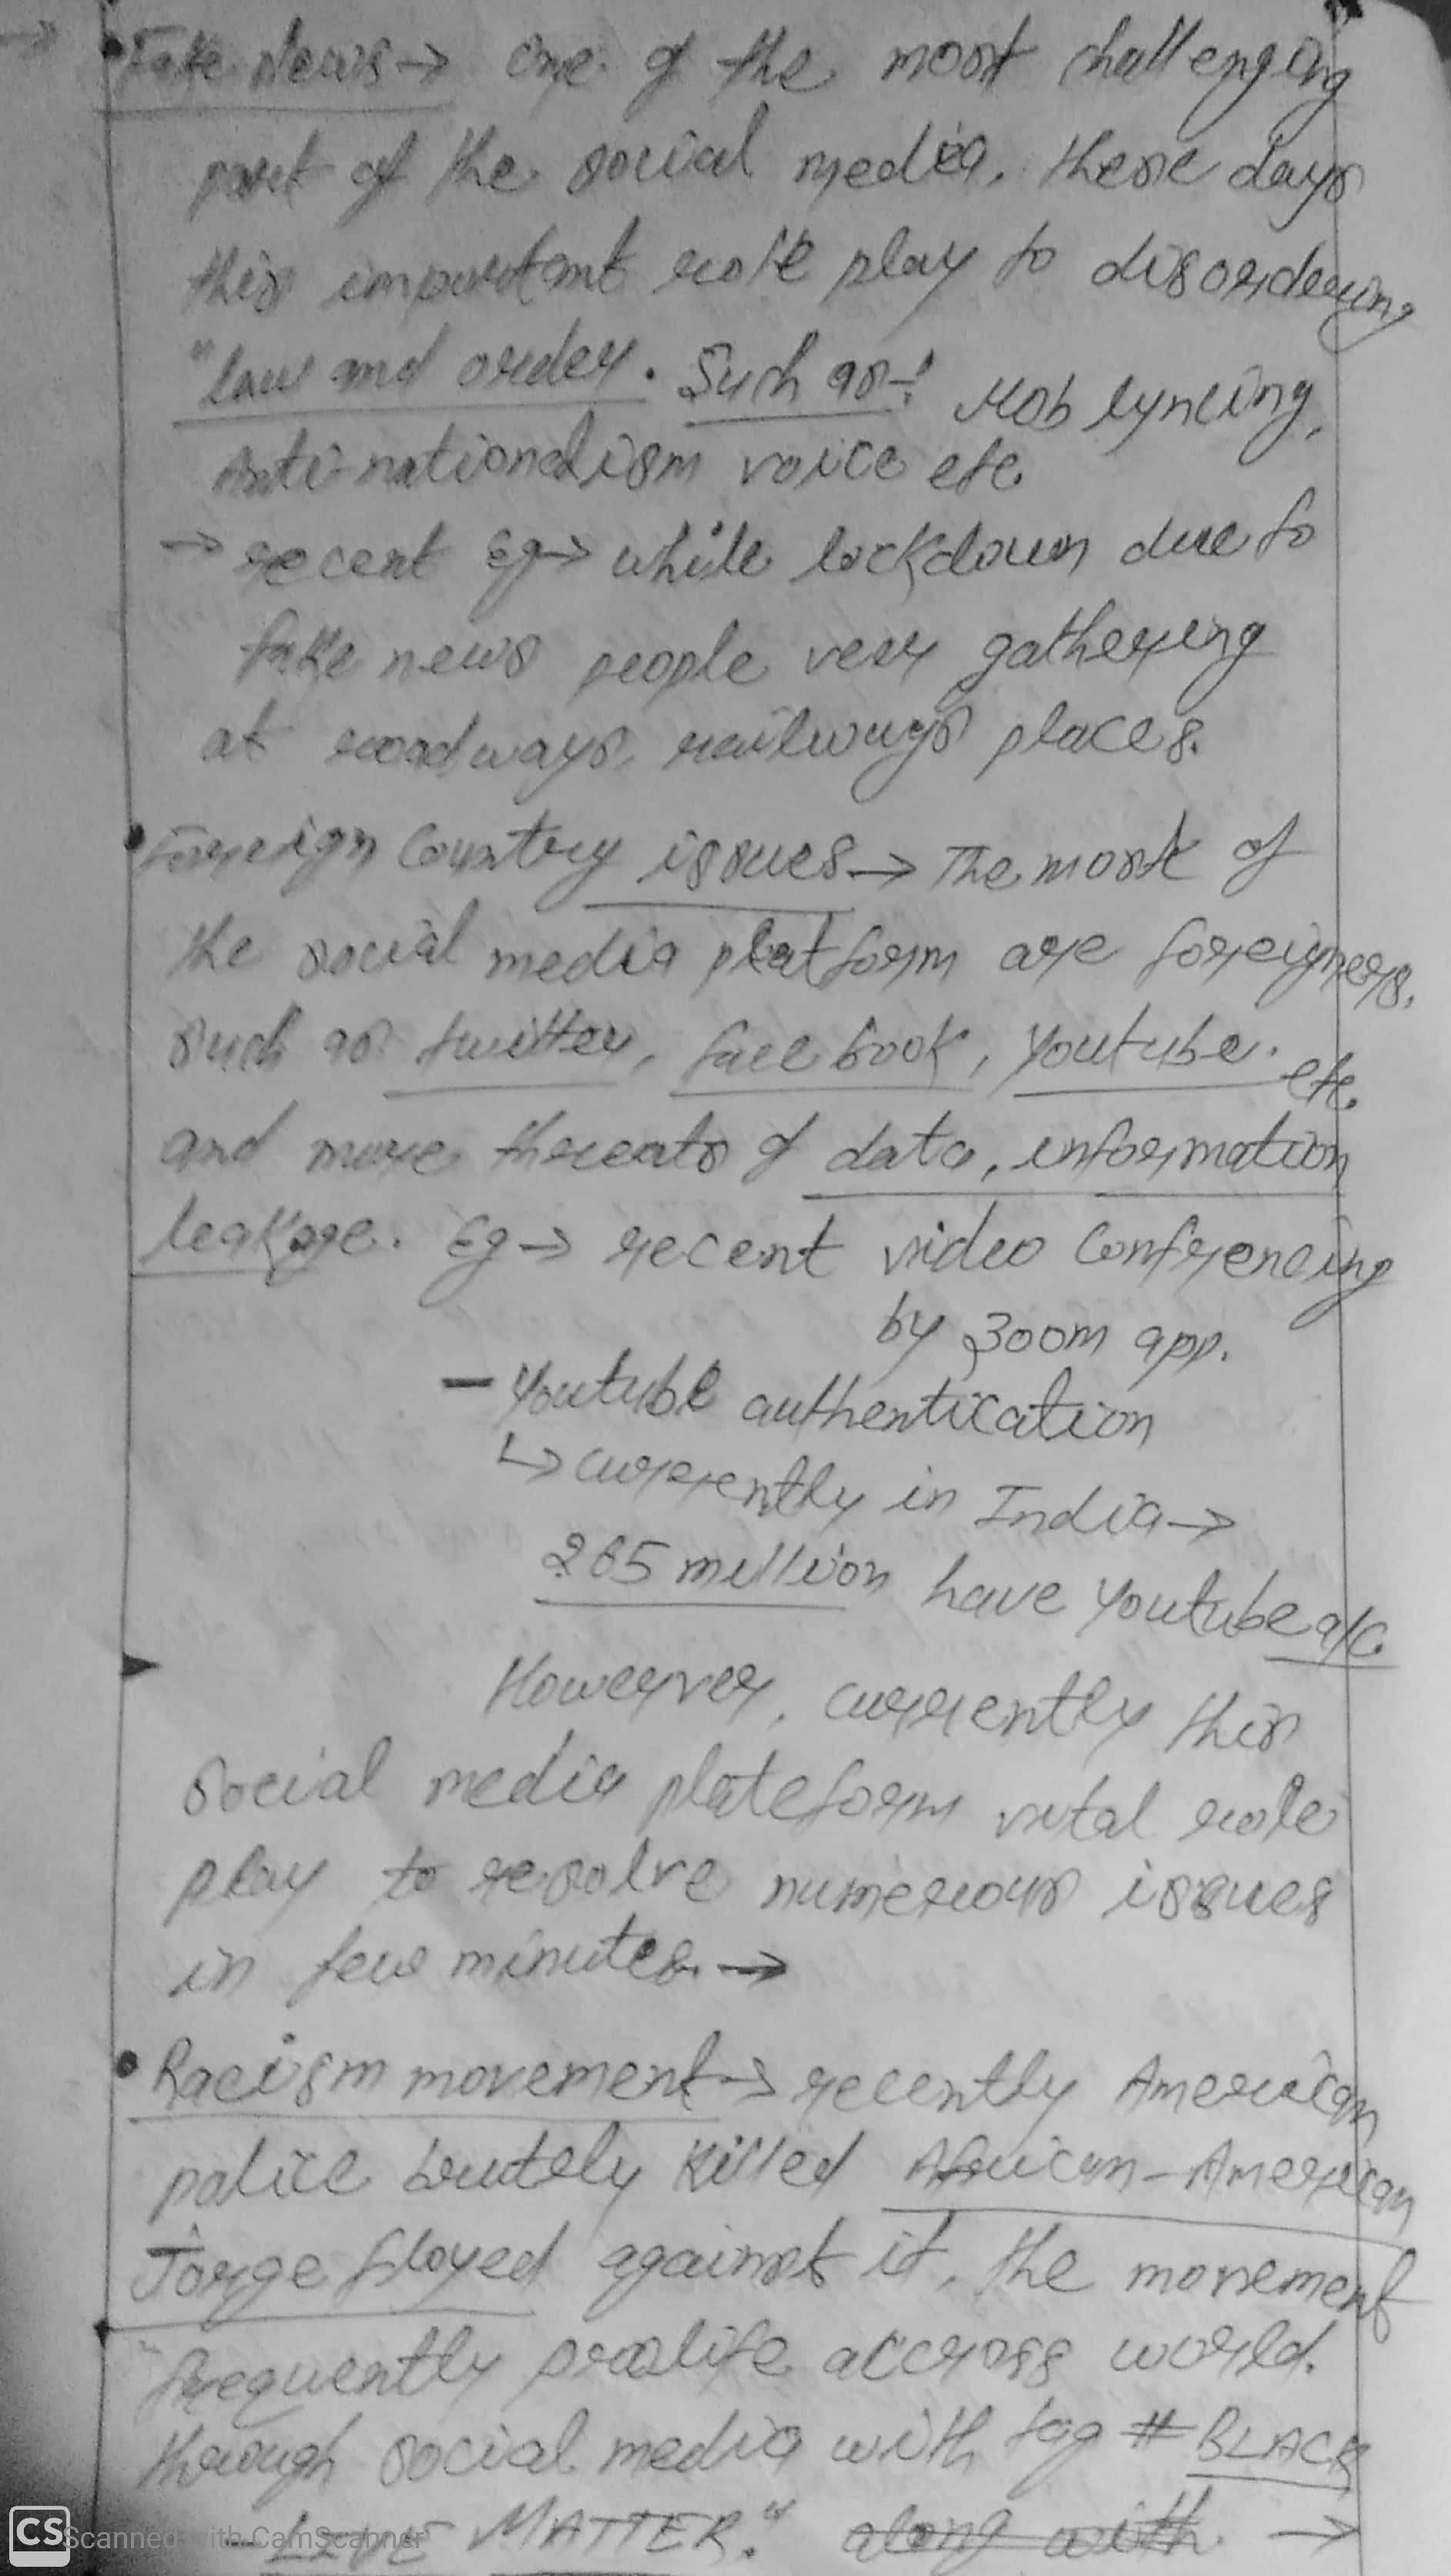 → • Fake News → One of the most challenging
part of the social media, these days
this important role play to disordering
"law and order. Such as-: Mob lyncing,
Anti-nationalism voice etc
→ recent Eg → while lockdown due to
fake news people very gathering
at roadways, railways places.
• Foreign Country issues → The most of
the social media platform are foreigners.
Such as twitter, facebook, youtube. etc.
and more threats of data, information
leakage. Eg → recent video Confrencing
by zoom app.
- Youtube authentication
↳ currently in India →
265 million have youtube a/c.
Howerver, currently this
Social media plateform vital role
play to resolve numerous issues
in few minutes. →
• Racism movement → recently American
police brutely killed African-American
Jorge floyed against it, the movement
frequently prolife accross world.
through social media with tag # BLACK
LIVE MATTER." along with →
CS Scanned with CamScanner